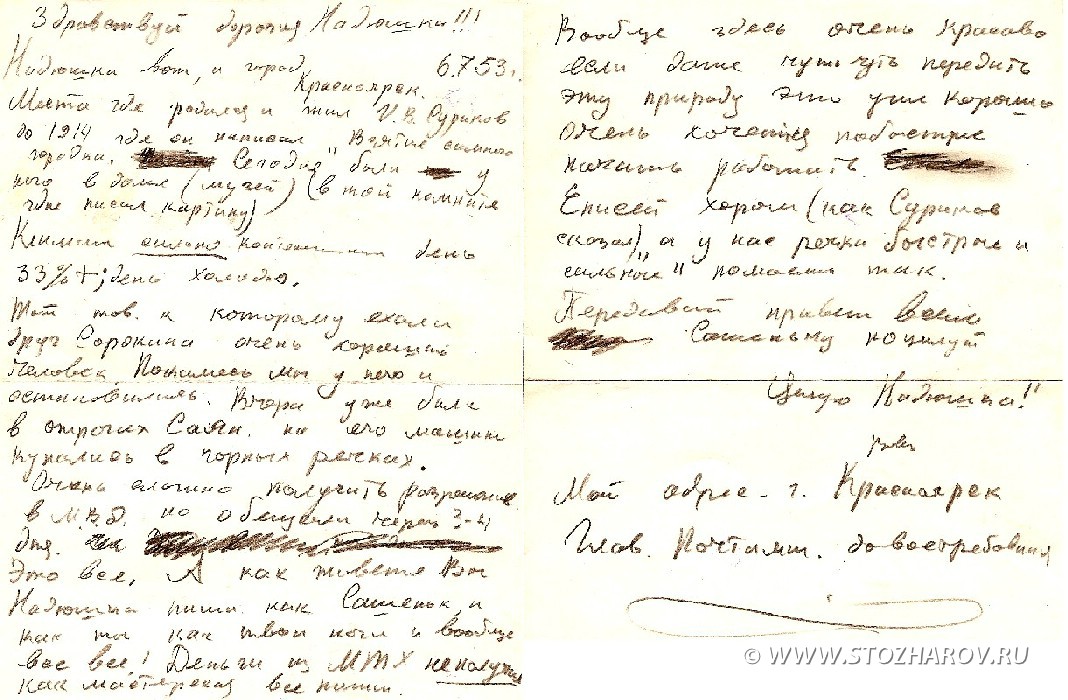 Здравствуй дорогая Надюшка!!!
Надюшка вот, и город 6.7.53г.
Красноярск.
Места где родился и жил И.В. Суриков
до 1914 где он написал "Взятие снежного
городка. Сегодня были у
него в доме (музей) (в той комнате
где писал картину)
Климат сильно день
33%+; день холодно.
Тот тов. к которому ехали
друг Сорокина очень хороший
человек мы у него и
остановились. Вчера уже были
в отрогах Саян. на его машине
купались в горных речках.
Очень сложно получить разрешение
в М.В.Д. но обещали через 3-4
дня.
Это все, А как живете Вы
Надюшка пиши как Сашеньк, и
как ты как твои ноги и вообще
все все! Деньги из МТХ не получил
как мастерская все пиши.
Вообще здесь очень красиво
если даже чуть чуть передать
эту природу это уже хорошо
Очень хочется побыстрее
начать работать.
Енисей хорош (как Суриков
сказал), а у нас речки быстрые и
сильные так.
Передавай привет всем
Сашеньку поцелуй
Целую Надюшка!!
Мой адрес - г. Красноярск
Глав. Почтамт. довостребования
© WWW.STOZHAROV.RU